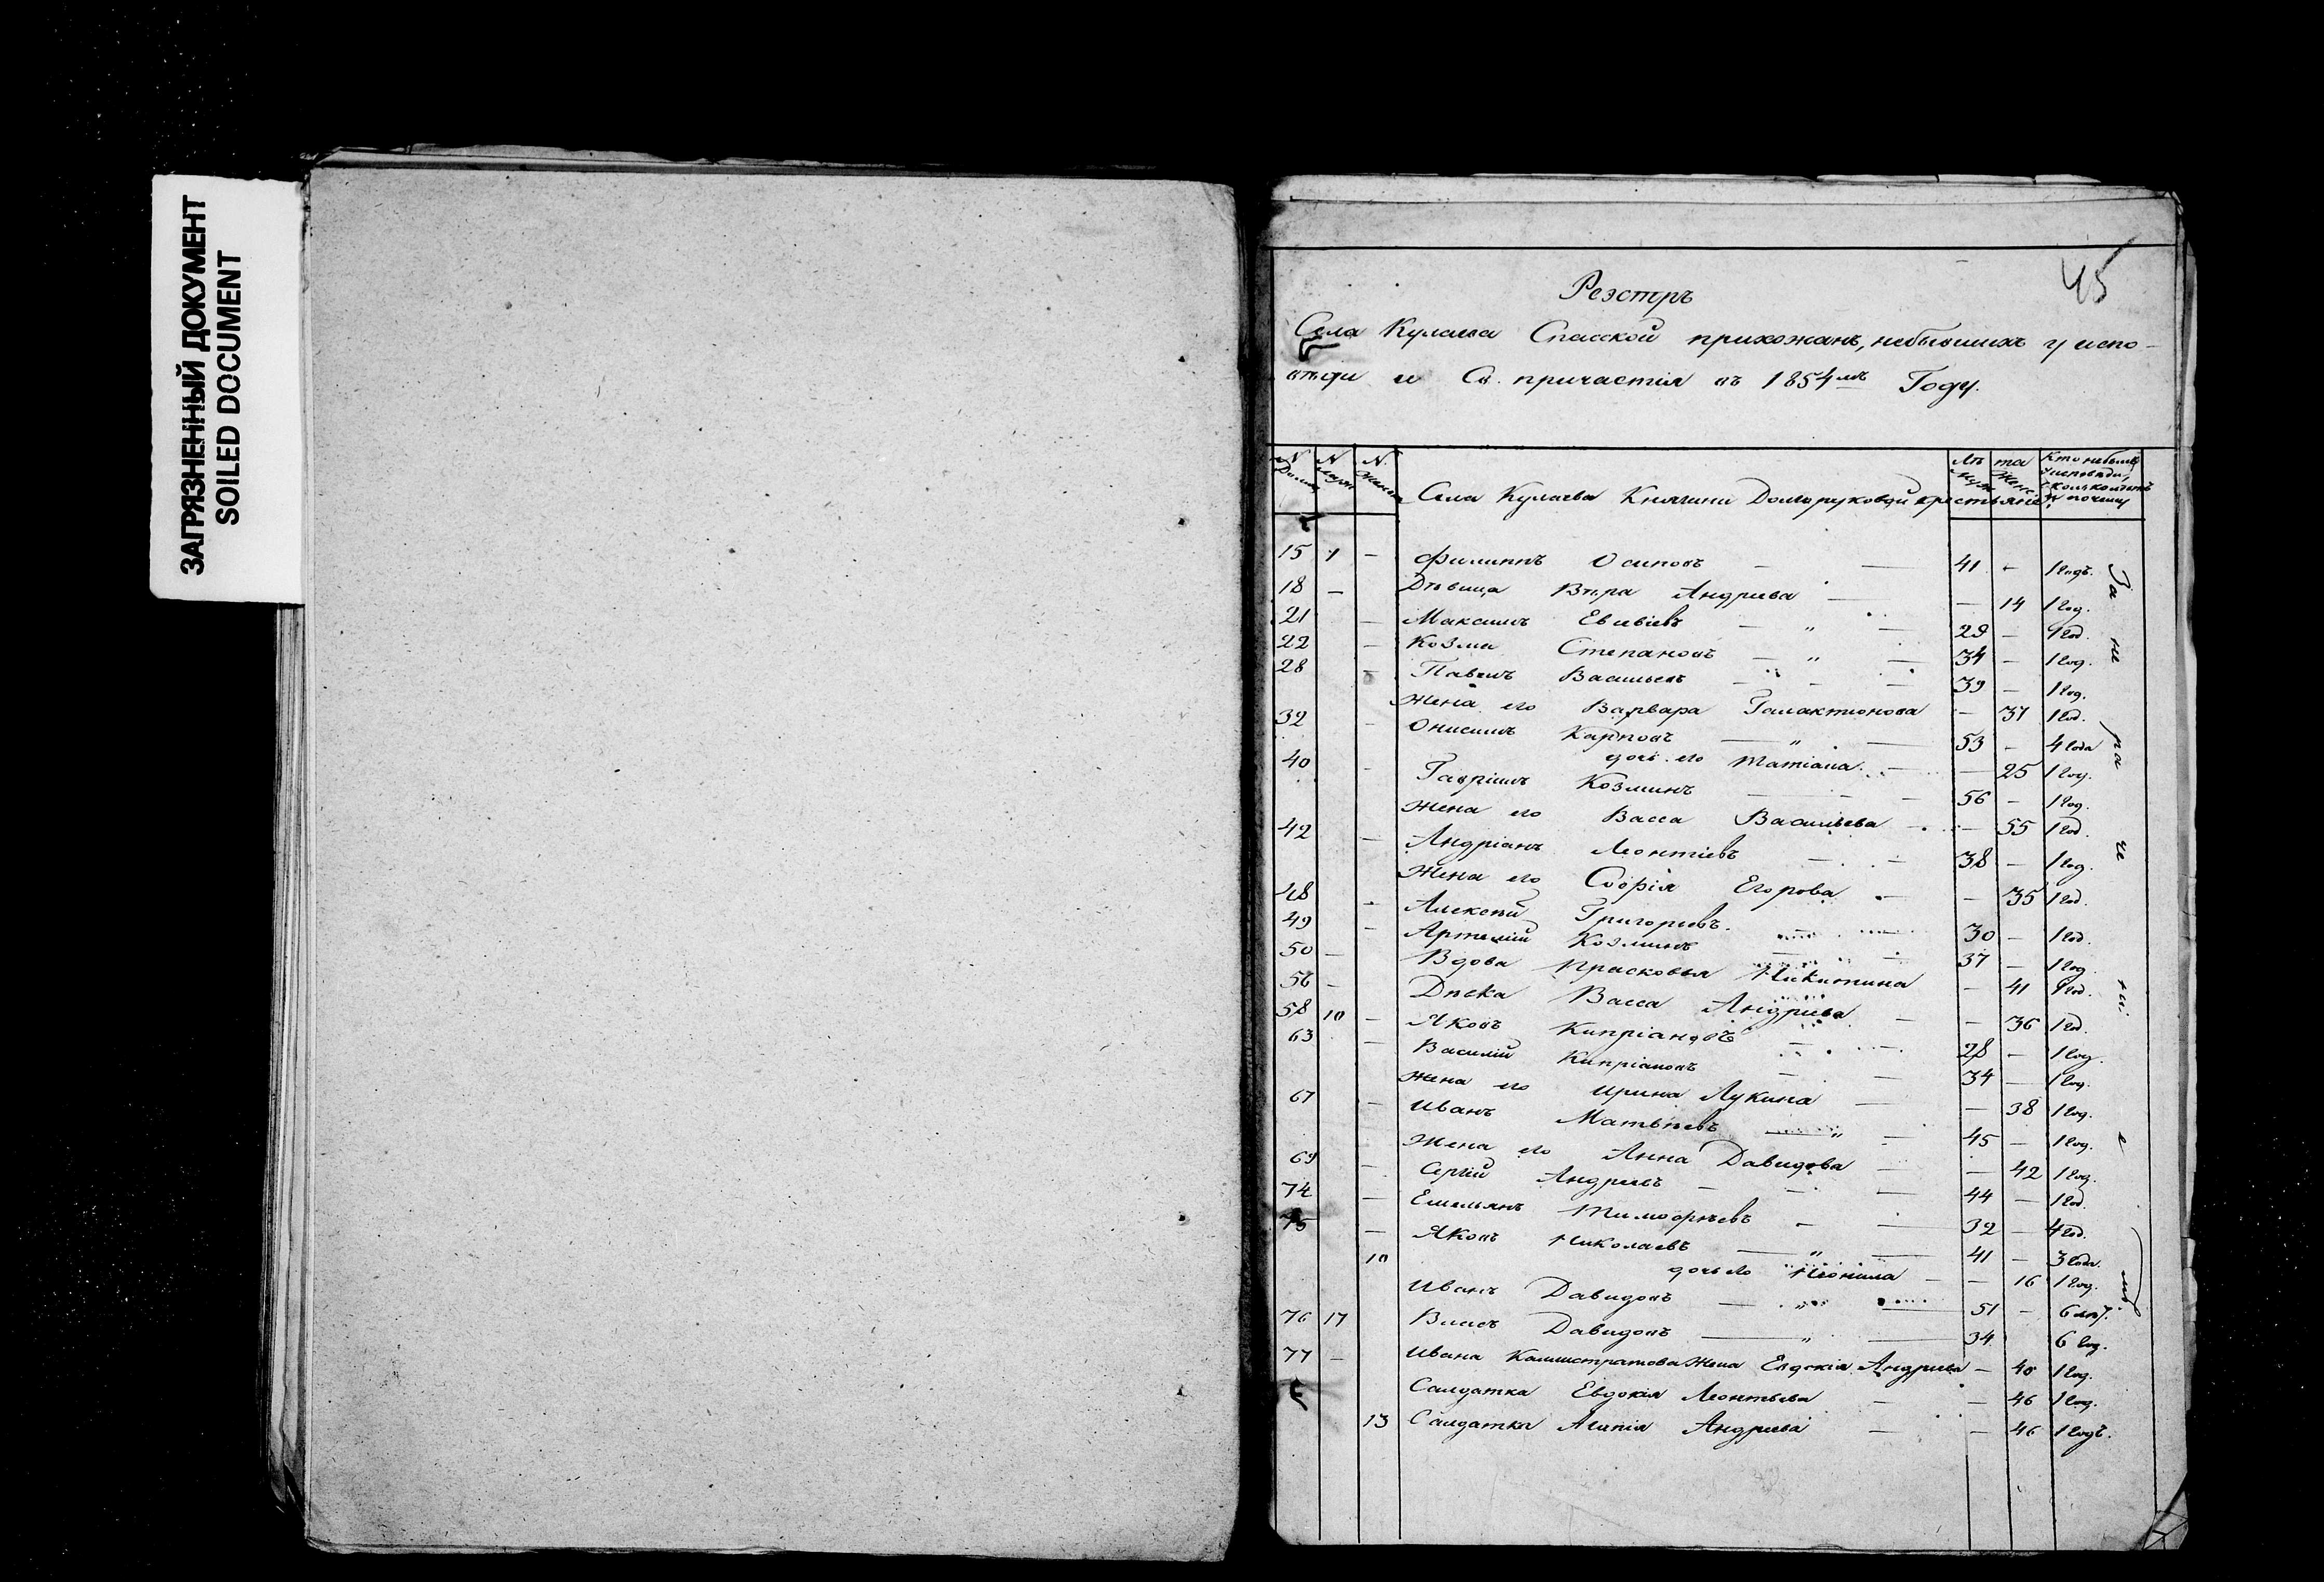 ЗАГРЯЗНЕННЫЙ ДОКУМЕНТ
SOILED DOCUMENT
45
Реэстръ
Села Кулаева Спасской прихожанъ, небывшихъ у испо-
вѣди и Св. причастія въ 1854мъ Году.
N N N. Лѣ та Кто небылъ
муж. Женс. у исповѣди,
Села Кулаева Княгини Долгоруковой крестьяне и почему
15 1 — Филиппъ Осиповъ — — 41 — 1 годъ.
18 — Дѣвица Вѣра Андреева — — 14 1 год.
21 — Максимъ — " — 29 — 1 год.
22 — Козма Степановъ — " — 34 — 1 год.
28 — Павелъ Васильевъ — — — 39 — 1 год.
Жена его Варвара Галактионова — 37 1 год.
32 — Онисимъ Карповъ — " — 53 — 4 года
дочь его Татіана — — 25 1 год.
40 — Гавріилъ Козминъ — — — 56 — 1 год.
Жена его Васса Васильева — — 55 1 год.
42 — Андріанъ Леонтіевъ — — 38 — 1 год.
Жена его Софія Егорова — — 35 1 год.
48 — Алексѣй Григорьевъ. 30 — 1 год.
49 — Артемій Козминъ — — 37 — 1 год.
50 — Вдова Прасковья Никитина — 41 1 год.
56 — Дѣвка Васса Андреева — — 36 1 год.
58 10 — Яковъ Кипріановъ — — 28 — 1 год.
63 — Василій Кипріановъ — — 34 — 1 год.
Жена его Ирина Лукина — — 38 1 год.
67 — Иванъ Матвѣевъ — " — 45 — 1 год.
Жена его Анна Давидова — — 42 1 год.
69 — Сергій Андреевъ — — — 44 — 1 год.
74 — Емельянъ Тимофѣевъ — — 32 — 4 год.
75 — Яковъ Николаевъ — " — 41 — 3 года.
10 дочь его Неонила — — 16 1 год.
Иванъ Давидовъ — " — 51 — 6 лѣт.
76 17 Давидовъ — " — 34 6 год.
77 — Ивана Каллистратова Жена Евдокія Андреева — 40 1 год.
Салдатка Евдокія Леонтьева — — 46 1 год.
13 Салдатка Агапія Андреева — — 46 1 годъ.
За не ра че ні е мъ